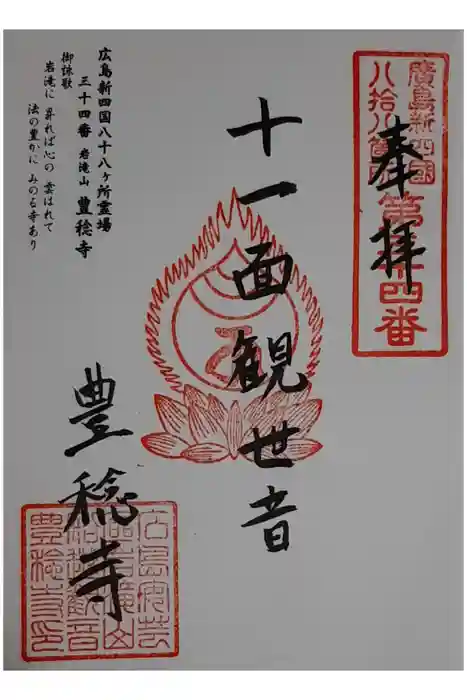 廣島新四國
八拾八箇所
第三十四番
奉拝
十一面観世音
広島新四国八十八ヶ所霊場
三十四番 岩滝山 豊稔寺
御詠歌
岩滝に 昇れば心の 雲はれて
法の豊かに みのる寺あり
豊稔寺